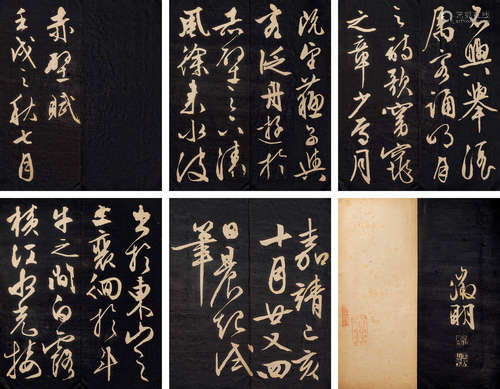 赤壁賦
壬戌之秋七月
既望蘇子與
客泛舟遊於
赤壁之下清
風徐來水波
不興舉酒
屬客誦明月
之詩歌窈窕
之章少焉月
出於東山之
上裵徊於斗
牛之間白露
橫江水光接
嘉靖己亥
十月廿又四
日晨起試
筆
徵明